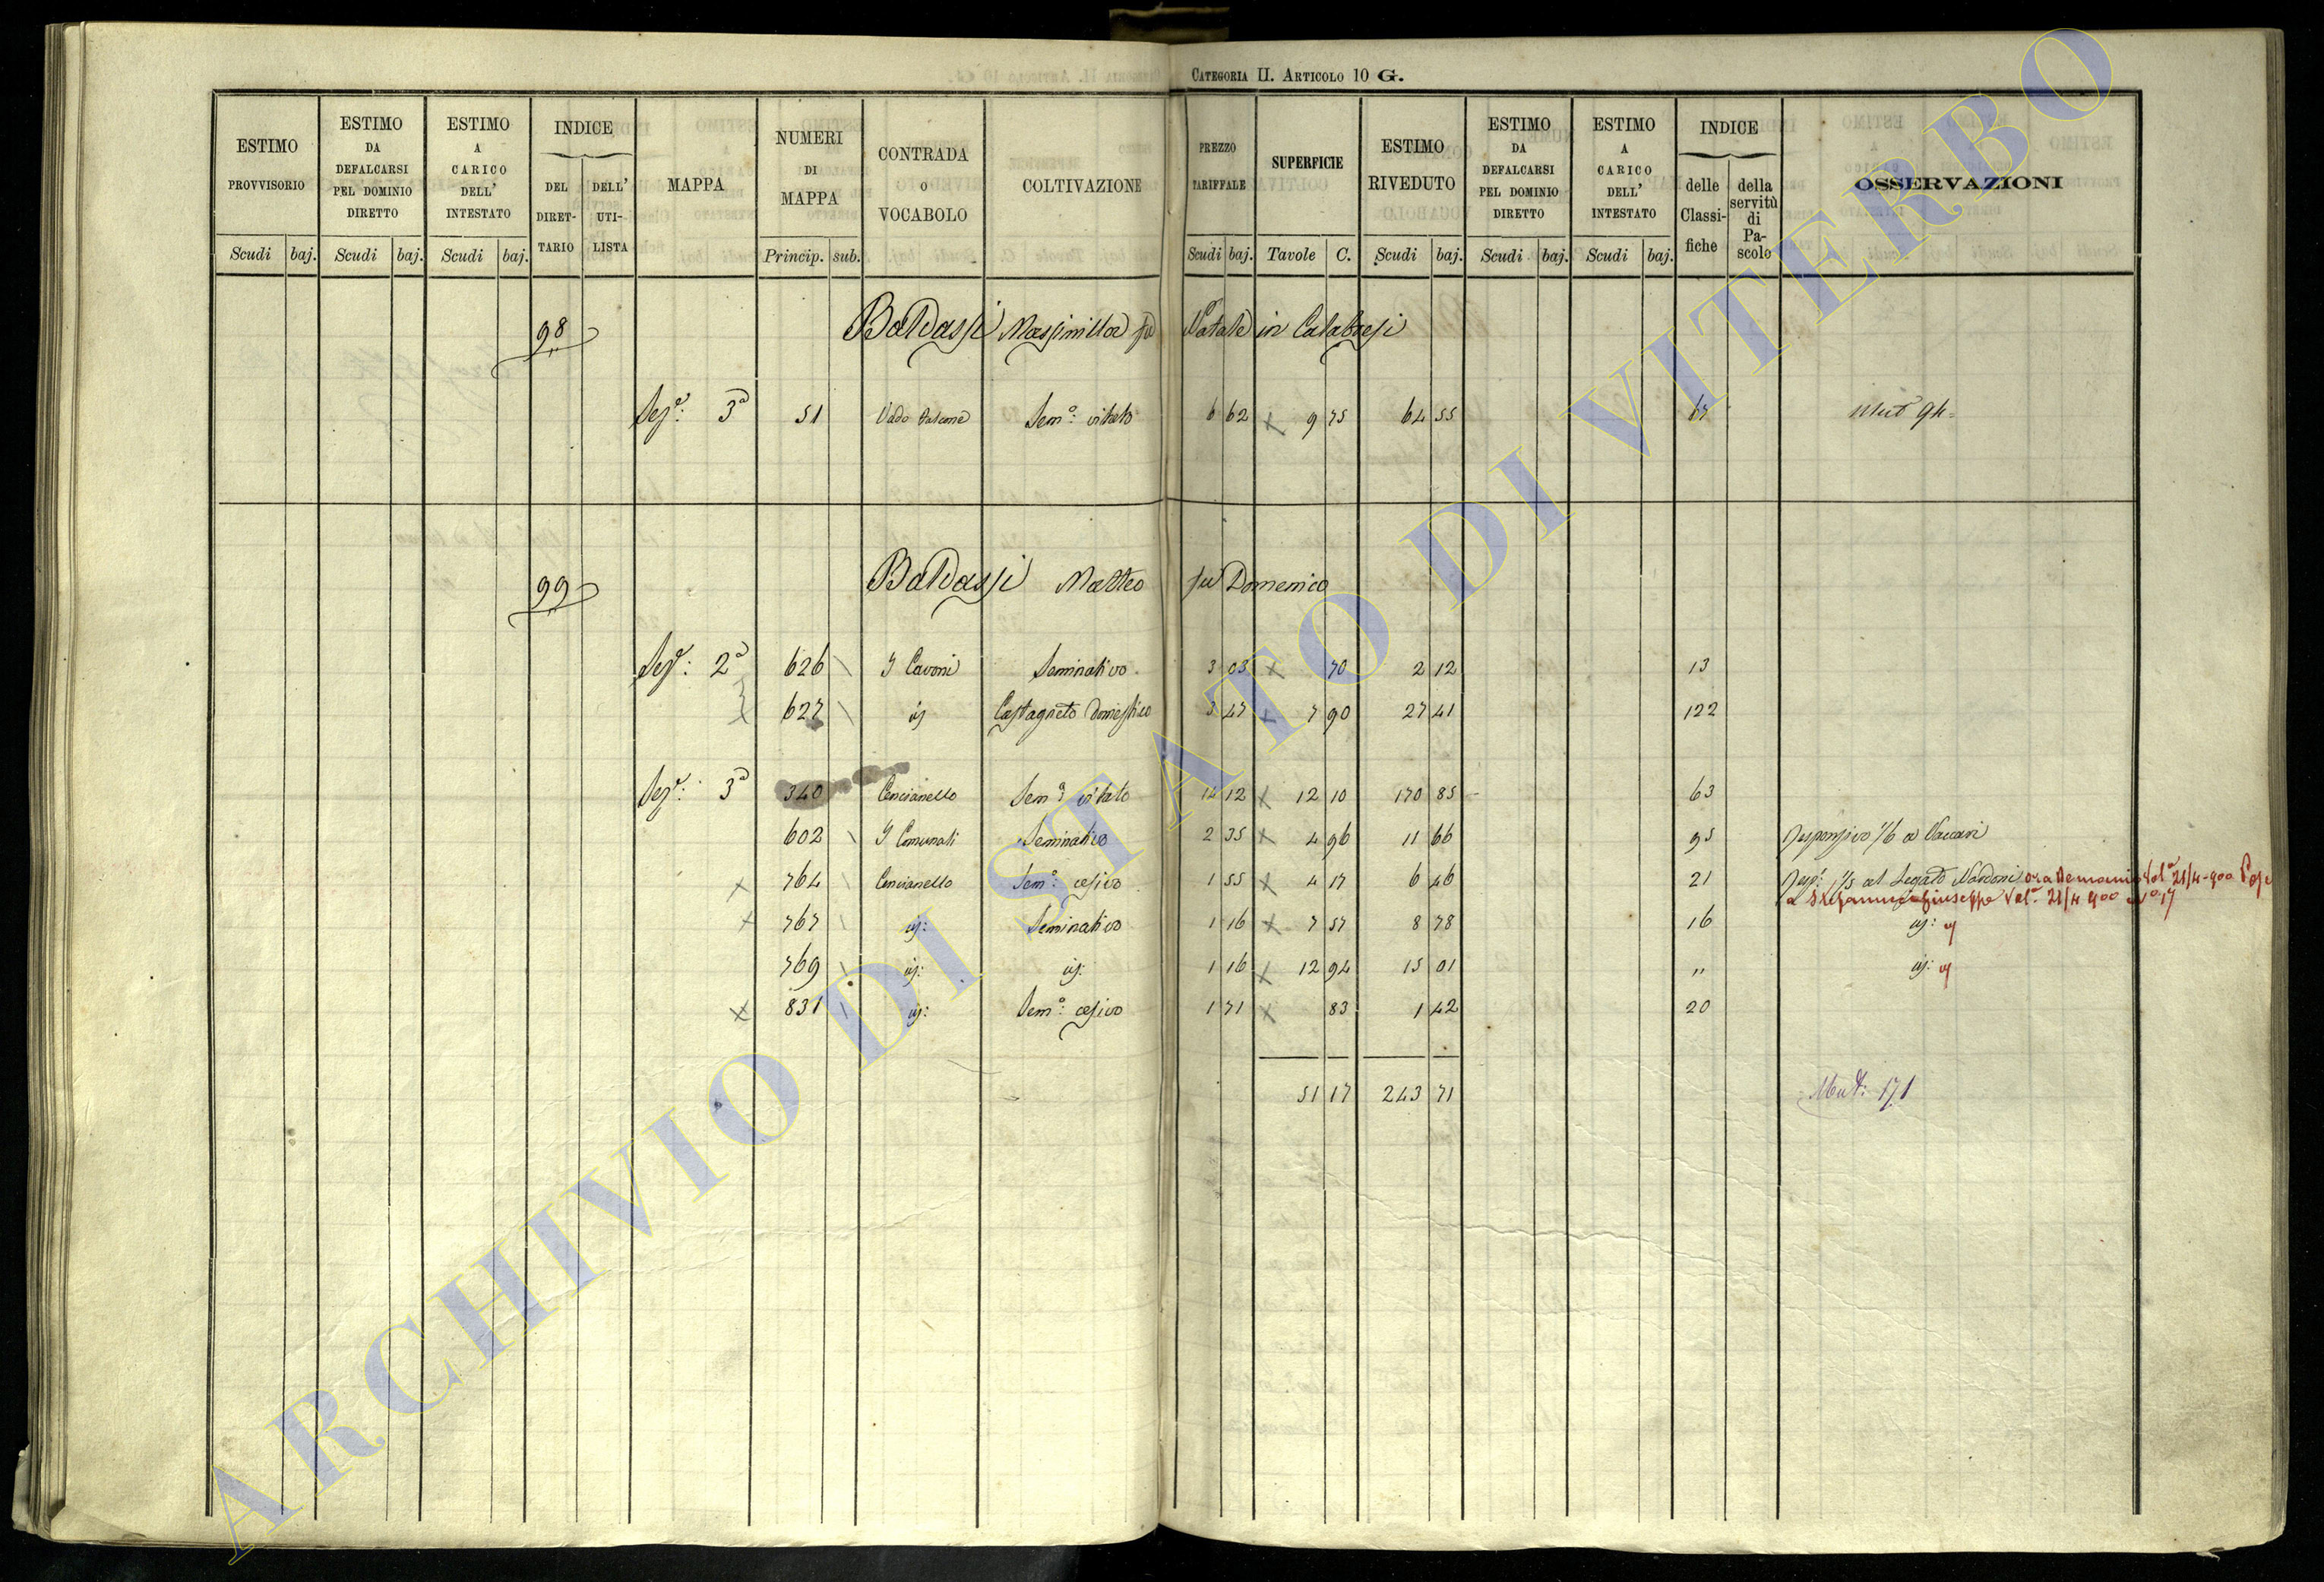 CATEGORIA II. ARTICOLO 10 G.
ESTIMO PROVVISORIO
ESTIMO DA DEFALCARSI PEL DOMINIO DIRETTO
ESTIMO A CARICO DELL' INTESTATO
INDICE
DEL DIRETTARIO
DELL' UTILISTA
MAPPA
NUMERI DI MAPPA
CONTRADA O VOCABOLO
COLTIVAZIONE
PREZZO TARIFFALE
SUPERFICIE
ESTIMO RIVEDUTO
ESTIMO DA DEFALCARSI PEL DOMINIO DIRETTO
ESTIMO A CARICO DELL' INTESTATO
INDICE
delle Classifiche
della servitù di Pascolo
OSSERVAZIONI
Scudi baj. Scudi baj. Scudi baj. Princip. sub. Scudi baj. Tavole C. Scudi baj. Scudi baj. Scudi baj.
98 Baldassi Massimilla fu Natale in Calabresi
Sez.e: 3a 51 Vado Sem.o: vitato 6 62 9 75 64 55 67 Mut 94
99 Baldassi Matteo fu Domenico
Sez.e: 2a 626 I Cavoni Seminativo 3 03 70 2 12 13
627 id Castagneto Domestico 3 47 7 90 27 41 122
Sez.e: 3a 340 Cencianello Sem.o vitato 14 12 12 10 170 85 63
602 I Comunali Seminativo 2 35 4 96 11 66 95 Responsivo 1/6 a Vaccari
764 Cencianello Sem.o: cesivo 1 55 4 17 6 46 21 Resp: 1/5 al Legato Nardoni ora Demanio Vol.a 21/4-900
a Stefanucci Giuseppe Vol.a 21/4 900 N.o 17
767 id: Seminativo 1 16 7 57 8 78 16 id: id
769 id: id: 1 16 12 94 15 01 " id: id
831 id: Sem.o: cesivo 1 71 83 1 42 20
51 17 243 71 Mut: 171
ARCHIVIO DI STATO DI VITERBO